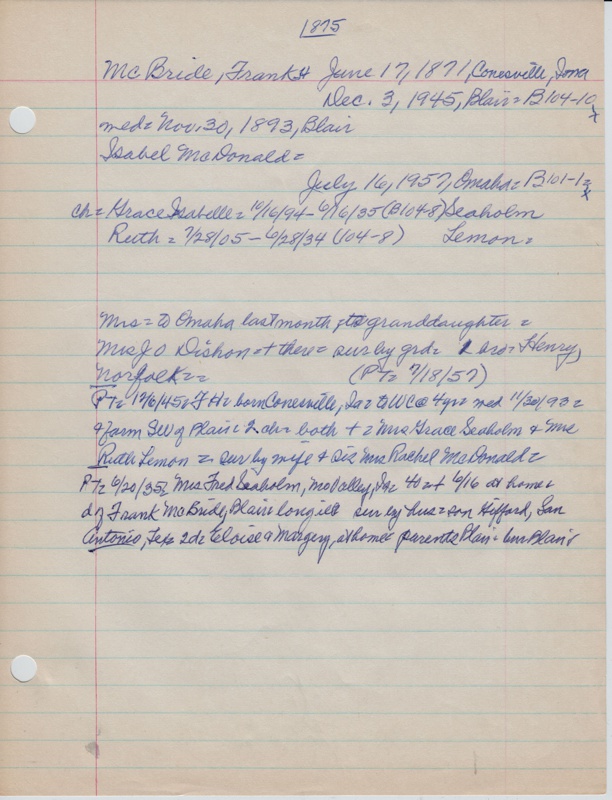 1875
McBride, Frank H June 17, 1871, Conesville, Iowa
Dec. 3, 1945, Blair = B104-10
x
med = Nov. 30, 1893, Blair
Isabel McDonald =
July 16, 1957, Omaha = B101-1 =
x
ch = Grace Isabelle = 11/16/94 - 6/16/35 (B104-8) Seaholm
Ruth = 7/28/05 - 6/28/34 (104-8) Lemon =
Mrs = to Omaha last month granddaughter =
Mrs J O Dishon = + there = sur by grd = bro = Henry,
Norfolk = = (PT = 7/18/57)
PT = 12/6/45 = F H = born Conesville, Ia = to WC @ 4 yr = med 11/30/93 =
& farm SW of Blair = 2 ch = both + = Mrs Grace Seaholm & Mrs
Ruth Lemon = sur by wife & sis Mrs Rachel McDonald =
PT = 6/20/35 = Mrs Fred Seaholm, Mo Valley, Ia = 40 = + 6/16 at home =
d of Frank McBride, Blair = long ill sur by hus = son Hifford, San
Antonio, Tex = 2 d = Eloise & Margery, at home = parents Blair = bur Blair